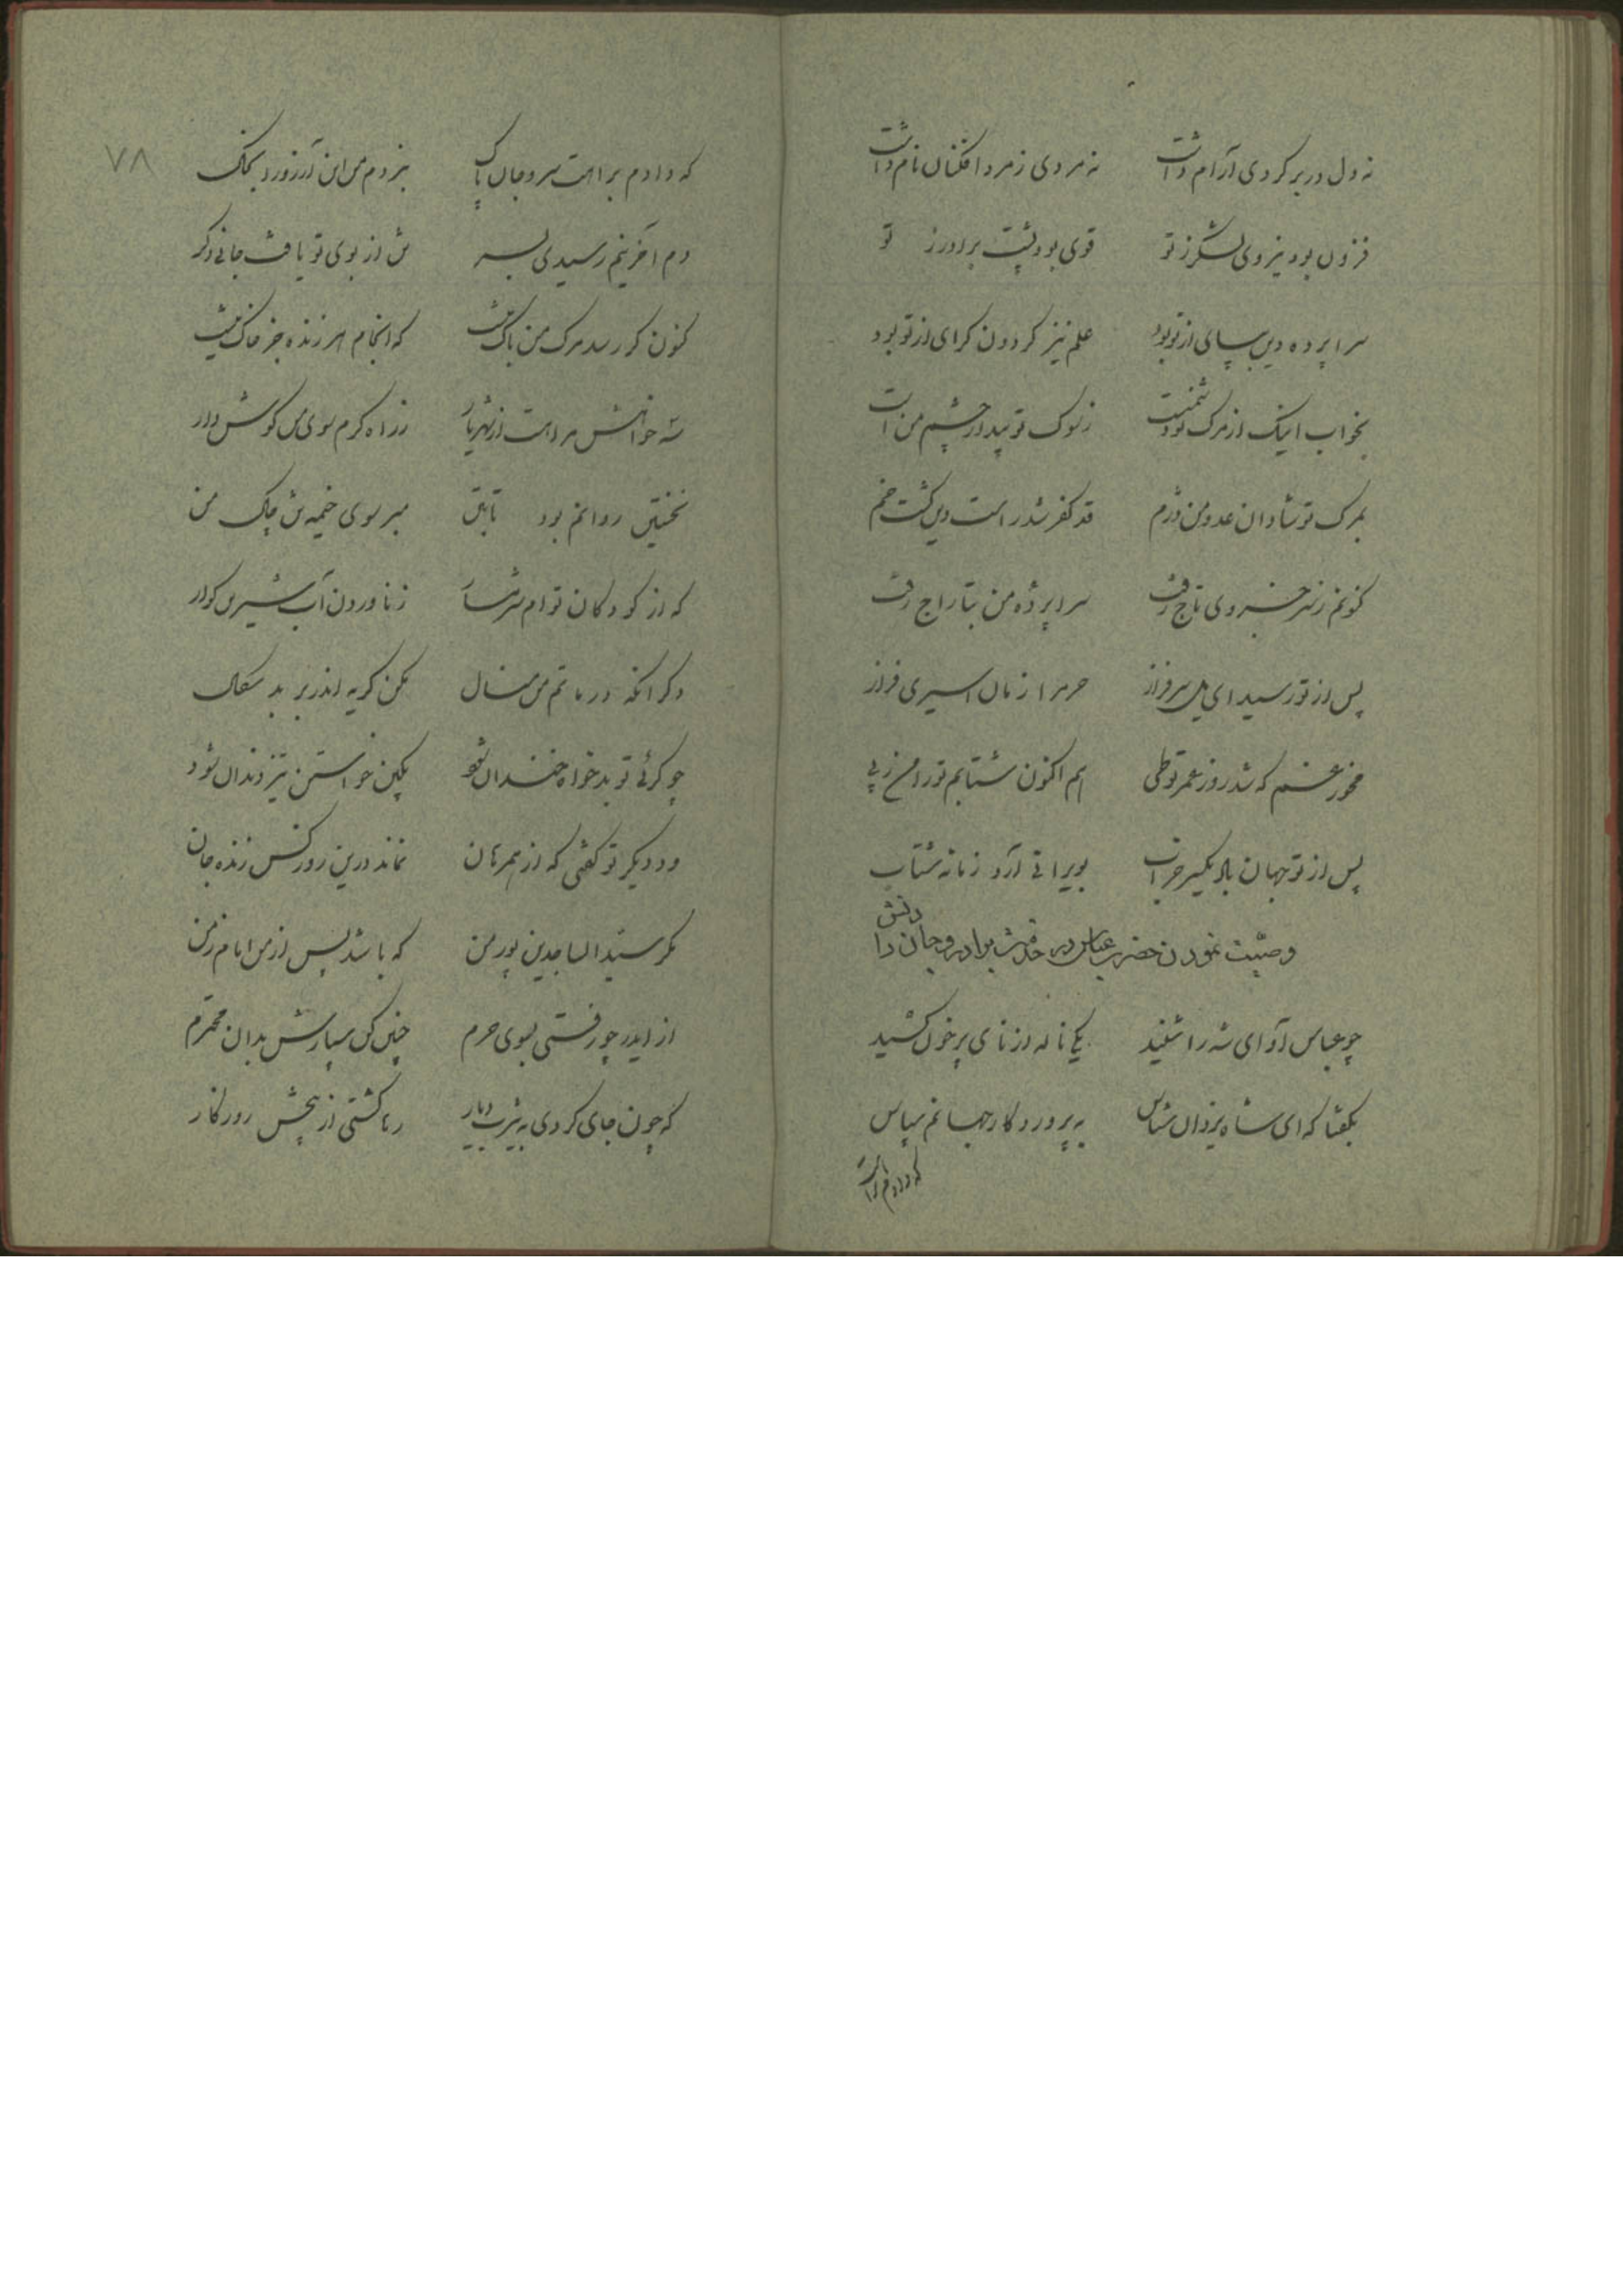 نه دل در بر کردی آرام داشت نه مردی ز مرد افکنان نام داشت
فزون بود نیروی لشکر ز تو قوی بود پشت برادر ز تو
سراپرده دین بپای از تو بود علم نیز کردون کرای از تو بود
بخواب اینک از مرک تو دشمنست ز سوک تو بیدار چشم من است
بمرک تو شادان عدو من دژم قد کفر شد راست دین کشت خم
کنونم ز سر خسروی تاج رفت سراپرده من بتاراج رفت
پس از تو رسید ای یل سرفراز حرم را زمان اسیری فراز
مخور غم که شد روز عمر تو طی هم اکنون شتابم تو را من ز پی
پس از تو جهان باد یکسر خراب بویرانی آرد زمانه شتاب
وصیت نمودن حضرت عباس در خدمت برادر و جان دادنش
چو عباس آوای شه را شنید یکی ناله از نای پر خون کشید
بکفتا که ای شاه یزدان شناس به پروردکار جهانم سپاس
که دادم براهت
۷۸
که دادم براهت سر و جان پاک نبردم من این آرزو را بخاک
دم آخرینم رسیدی بسر تن از بوی تو یافت جانی دکر
کنون کر رسد مرک من باک نیست که انجام هر زنده جز خاک نیست
سه خواهش مرا هست از شهریار ز راه کرم سوی من کوش دار
نخستین روانم بود تا بتن مبر سوی خیمه تن چاک من
که از کودکان توام شرمسار ز ناوردن آب شیرین کوار
دکر آنکه در ماتم من منال مکن کریه اندر بر بد سکال
چو کرئی تو بدخواه خندان شود بکین خواستن تیز دندان شود
و دیکر تو کفتی که از همرهان نماند درین روز کس زنده جان
مکر سید الساجدین پور من که باشد پس از من امام زمن
از ایدر چو رفتی بسوی حرم چنین کن سپارش بدان محترم
که چون جای کردی به یثرب دیار رها کشتی از رنجش روزکار